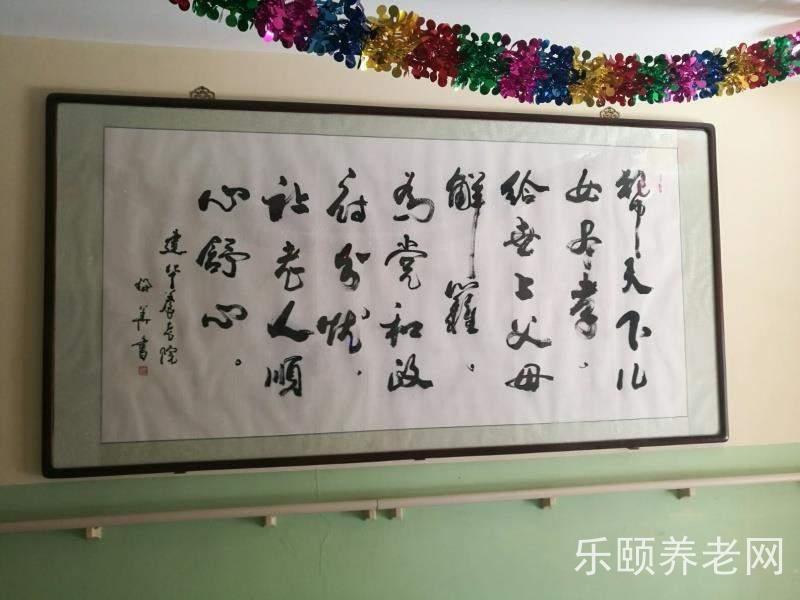 帮天下儿
女尽孝，
给世上父母
解難。
为党和政
府分忧，
让老人順
心舒心。
建华养老院
書
乐颐养老网